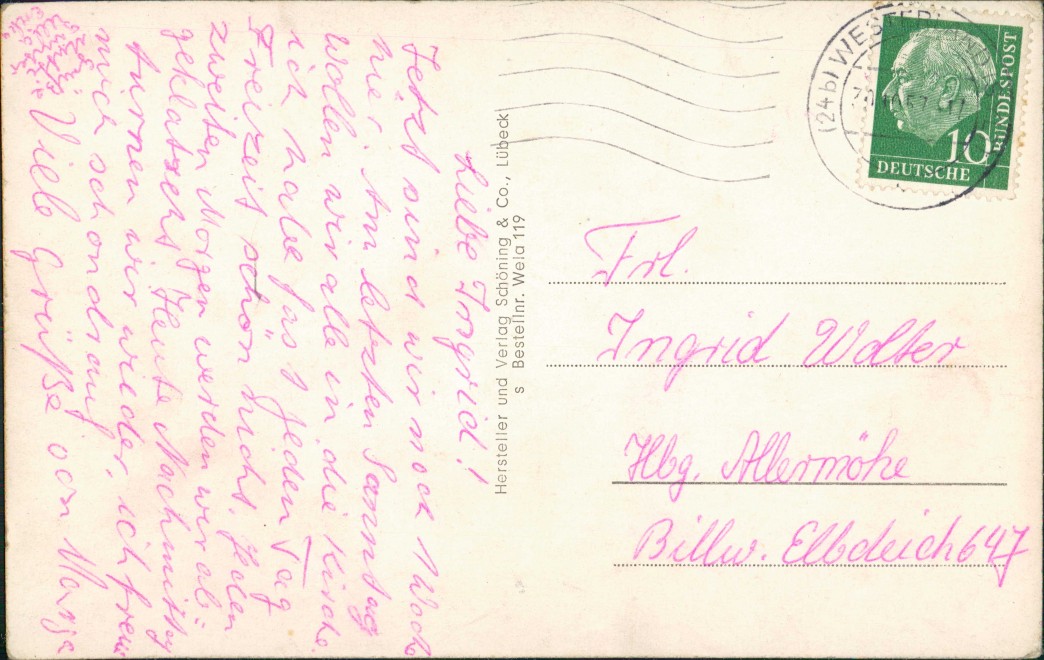 Liebe Ingrid!
Jetzt sind wir noch 1 Woche
hier. Am letzten Sonntag
wollen wir alle in die Kirche.
ich habe fast jeden Tag
Freizeit schön nicht. Jeden
zweiten Morgen werden wir ab-
geklatscht. Heute Nachmittag
turnen wir wieder, ich freue
mich schon drauf.
Viele Grüße von
Hersteller und Verlag Schöning & Co., Lübeck
s Bestellnr. Wela 119
(24b) WESTERLAND
10
DEUTSCHE
BUNDESPOST
Frl.
Ingrid Wolter
Hbg. Allermöhe
Billw. Elbdeich 647